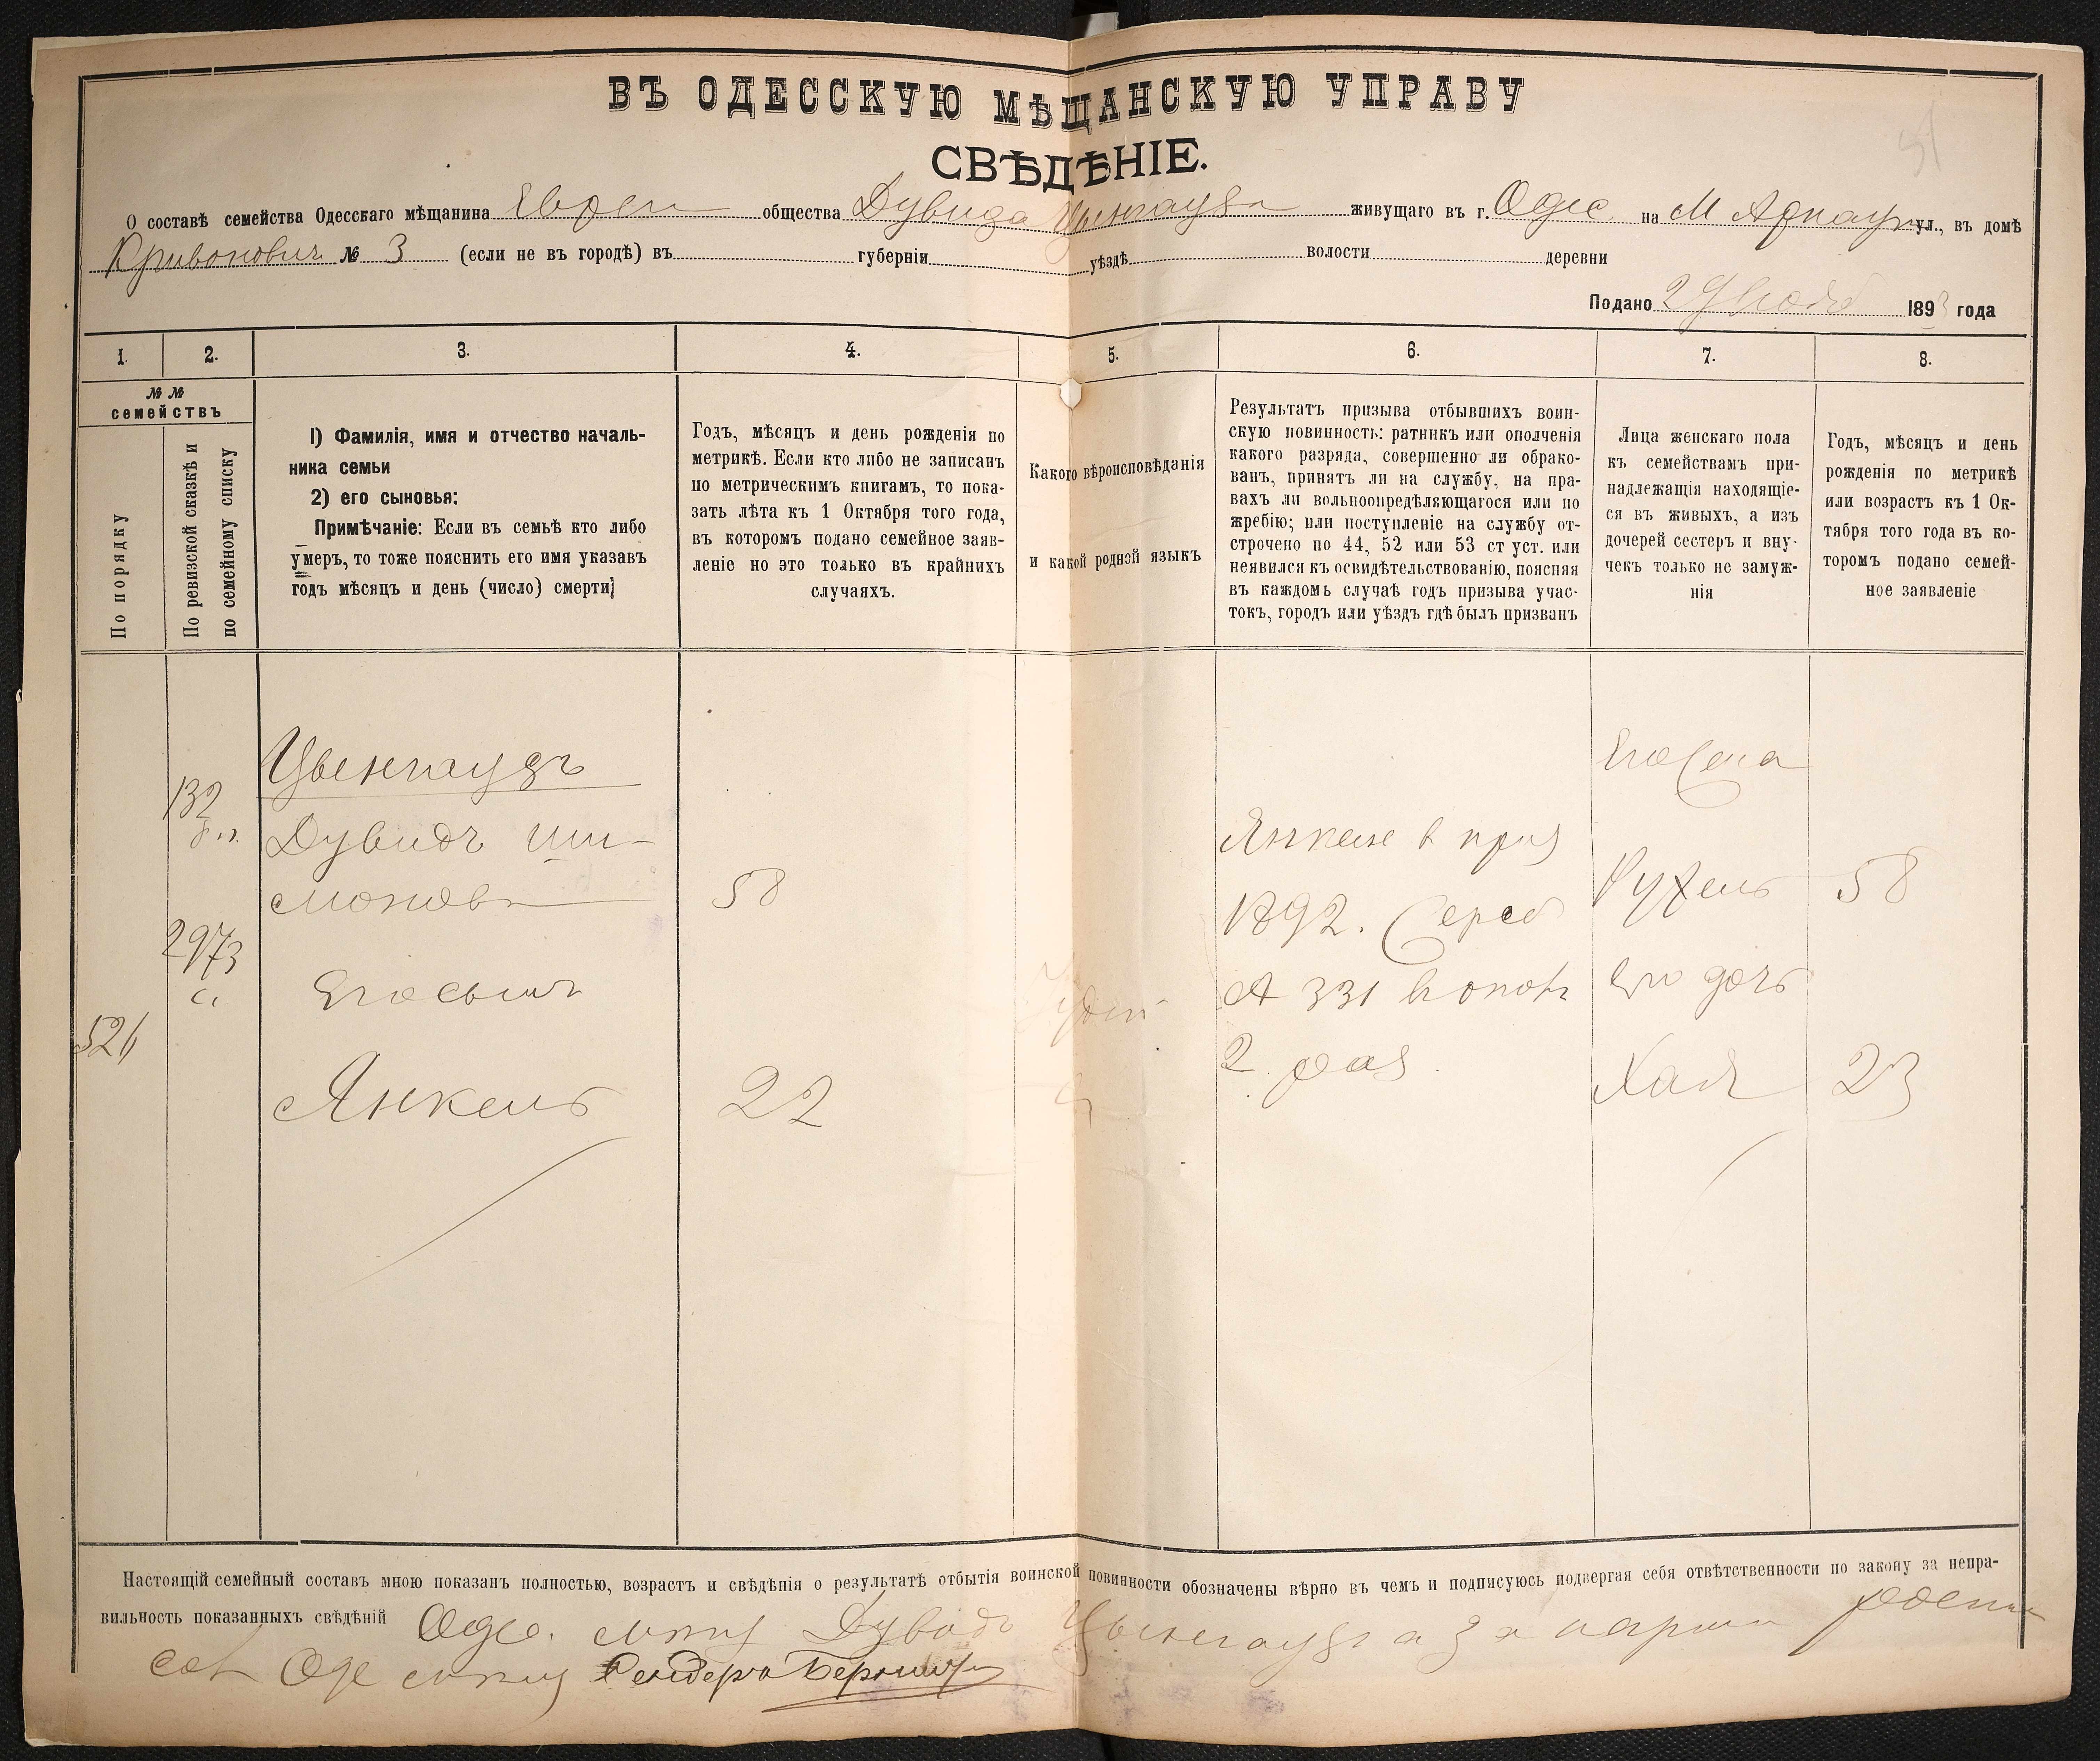 ВЪ ОДЕССКУЮ МѢЩАНСКУЮ УПРАВУ
СВѢДѢНІЕ.
О составѣ семейства Одесскаго мѣщанина Еврей общества Дувида Цвенгауза живущаго въ г. Одес. на М Арнаут ул., въ домѣ
№ 3 (если не въ городѣ) въ губерніи уѣздѣ волости деревни
Подано 29 1893 года
1. 2. 3. 4. 5. 6. 7. 8.
№ №
семействъ
По порядку
По ревизской сказкѣ и
по семейному списку
1) Фамилія, имя и отчество началь-
ника семьи
2) его сыновья:
Примѣчаніе: Если въ семьѣ кто либо
умеръ, то тоже пояснить его имя указавъ
годъ мѣсяцъ и день (число) смерти;
Годъ, мѣсяцъ и день рожденія по
метрикѣ. Если кто либо не записанъ
по метрическимъ книгамъ, то пока-
зать лѣта къ 1 Октября того года,
въ которомъ подано семейное заяв-
леніе но это только въ крайнихъ
случаяхъ.
Какого вѣроисповѣданія
и какой родной языкъ
Результатъ призыва отбывшихъ воин-
скую повинность: ратникъ или ополченія
какого разряда, совершенно ли обрако-
ванъ, принятъ ли на службу, на пра-
вахъ ли вольноопредѣляющагося или по
жребію; или поступленіе на службу от-
строчено по 44, 52 или 53 ст уст. или
неявился къ освидѣтельствованію, поясняя
въ каждомъ случаѣ годъ призыва учас-
токъ, городъ или уѣздъ гдѣ былъ призванъ
Лица женскаго пола
къ семействамъ при-
надлежащія находящіе-
ся въ живыхъ, а изъ
дочерей сестеръ и вну-
чекъ только не замуж-
нія
Годъ, мѣсяцъ и день
рожденія по метрикѣ
или возрастъ къ 1 Ок-
тября того года въ ко-
торомъ подано семей-
ное заявленіе
Цвенгаузъ
132
Дувидъ Ши-
моновъ 58
2973
с.
Его сынъ
526
Янкель 22
Янкель в приз
1892.
№ 331 в опол
2 раз.
Его жена
Рухель 58
Его дочь
Хая 23
Настоящій семейный составъ мною показанъ полностью, возрастъ и свѣдѣнія о результатѣ отбытія воинской повинности обозначены вѣрно въ чемъ и подписуюсь подвергая себя отвѣтственности по закону за непра-
вильность показанныхъ свѣдѣній Одес. мѣщ Дувидъ Цвенгаузъ а за
Оде мѣщ